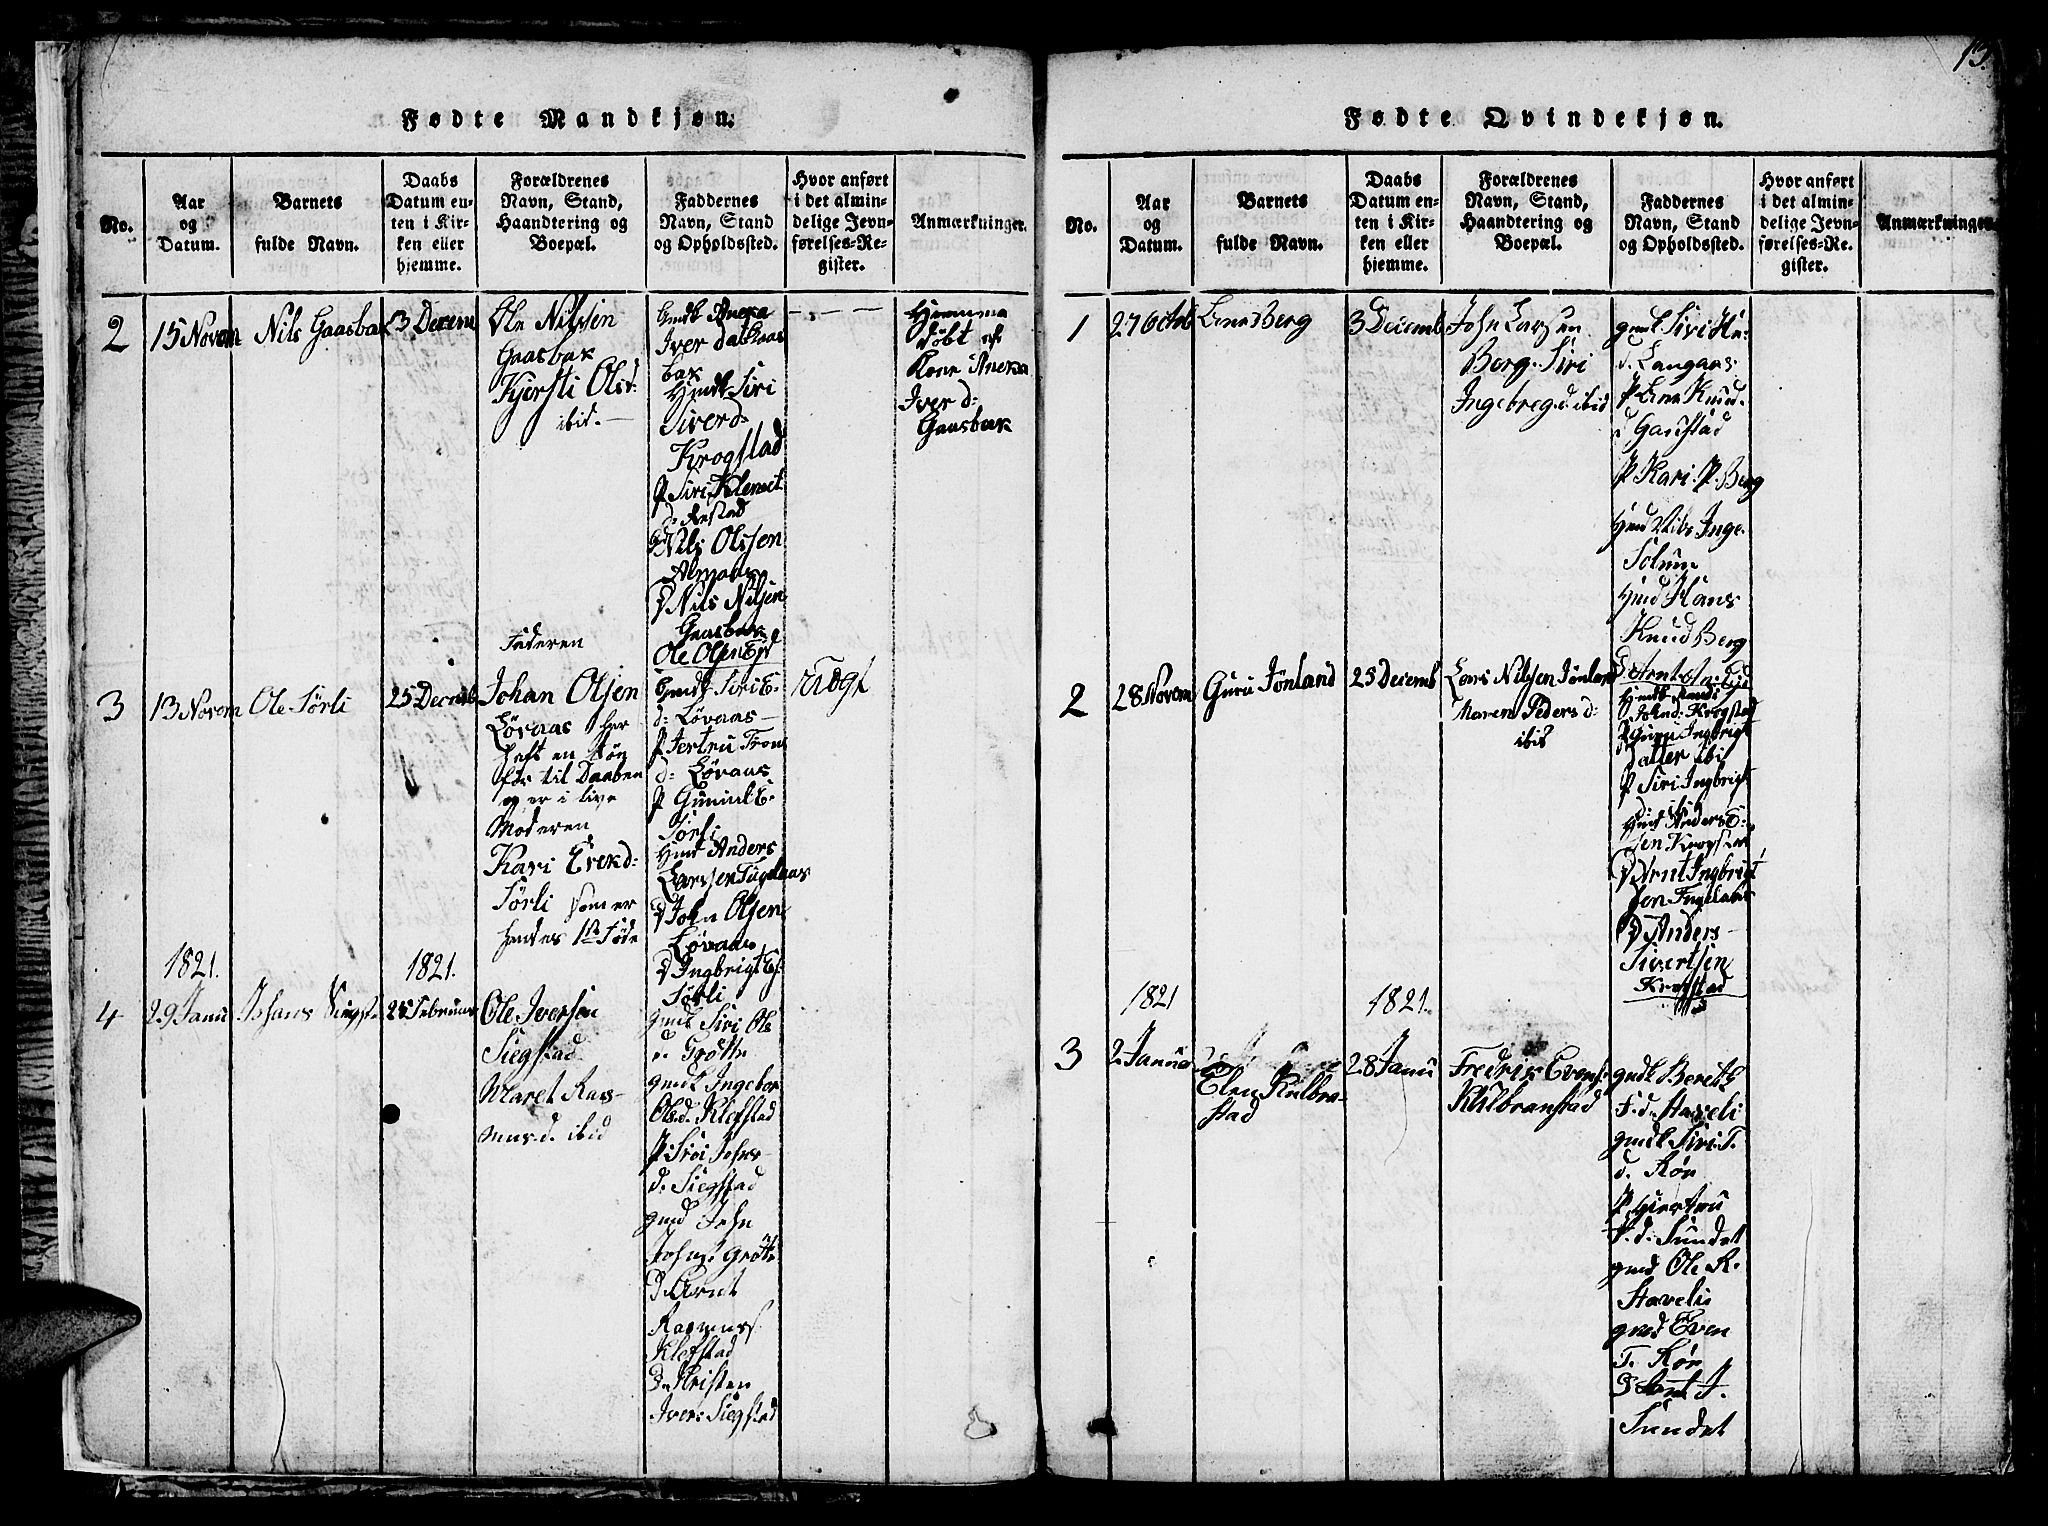 13.
Fødte Mandkjøn.
No.
Aar
og
Datum.
Barnets
fulde Navn.
Daabs
Datum en-
ten i Kir-
ken eller
hjemme.
Forældrenes
Navn, Stand,
Haandtering og
Boepæl.
Faddernes
Navn, Stand
og Opholdssted.
Hvor anført
i det almin-
delige Jevn-
førelses-Re-
gister.
Anmærkninger.
2
15 Novem
Nils Gaasbak
3 Decem
Ole Nilssen
Gaasbak
Kjersti Olsd:
ibid.
Gmdk Aneka
Iver dat Gaas
bak
Hmdk Siri
Siverd.
Krogstad
P Siri Klemit
d. Arstad
G Nils Olssen
Almaas
D Nils Nilsen
Gaasbak
Ole Olsen Eid
Hjemme
døbt af
Kone Aneka
Iver d:
Gaasbak
3
13 Novem
Ole Sørli
25 Decemb
Faderen
Johan Olsen
Løvaas har
haft en Søn
før til Daaben
og er i live
Moderen
Kari Erekd:
Sørli som er
hendes 1ste Føde
Gmdk Siri E.
d: Løvaas
P Jertru Tron
d: Løvaas
P Gunnil E.
Sørli
Hmd Anders
Larssen Fuglaas
D John Olsen
Løvaas
D Ingbrigt E.
Sørli
1821.
1821.
4
29 Janu
Johans Siegst
25 Februar
Ole Iversen
Siegstad
Maret Ras-
mus.d. ibid
gmdk Siri Ole
d. Grøtte
gmdk Ingebor
Olsd. Klefstad
P. Siri Johns-
d. Siegstad
gmd John
Johns. Grøtte
D Arnt
Rasmuss
Klefstad
D. Kristen
Ivers. Siegstad
Fødte Qvindekjøn.
No.
Aar
og
Datum.
Barnets
fulde Navn.
Daabs
Datum en-
ten i Kir-
ken eller
hjemme.
Forældrenes
Navn, Stand,
Haandtering og
Boepæl.
Faddernes
Navn, Stand
og Opholdssted.
Hvor anført
i det almin-
delige Jevn-
førelses-Re-
gister.
Anmærkninger.
1
27 Octob
Berg
3 Decemb
John Larsen
Berg. Siri
Ingebreg.d. ibid
gmdk Siri
d. Langaas
P Lena Knud.
d Ganstad
P Kari P. Berg
Inge.
Solum
Hmd Hans
Knud Berg
2
28 Novem
Guru Jønland
25 Decemb
Lars Nilsen Jønland
Maren Peders d:
ibid
Hmdk Randi
John d: Krogstad
P Guru Ingbrigt
datter ibi
P Siri Ingbrigt
d ibid
Hmd Anders E:
sen Krogstad
D Arnt Ingbrigt
sen Fuglaas
D Anders
Sivertsen
Krogstad
1821
1821.
3
2 Janua
Elen Kulbra-
stad
28 Janu
Fredrik Evens.
Kulbranstad
gmdk Bereth
F.d. Staveli
gmdk Siri T.
d. Røn
P Giertru
P.d. Sundet
gmd Ole R.
Stavelie
gmd Even
T. Røn
J.
Sundet